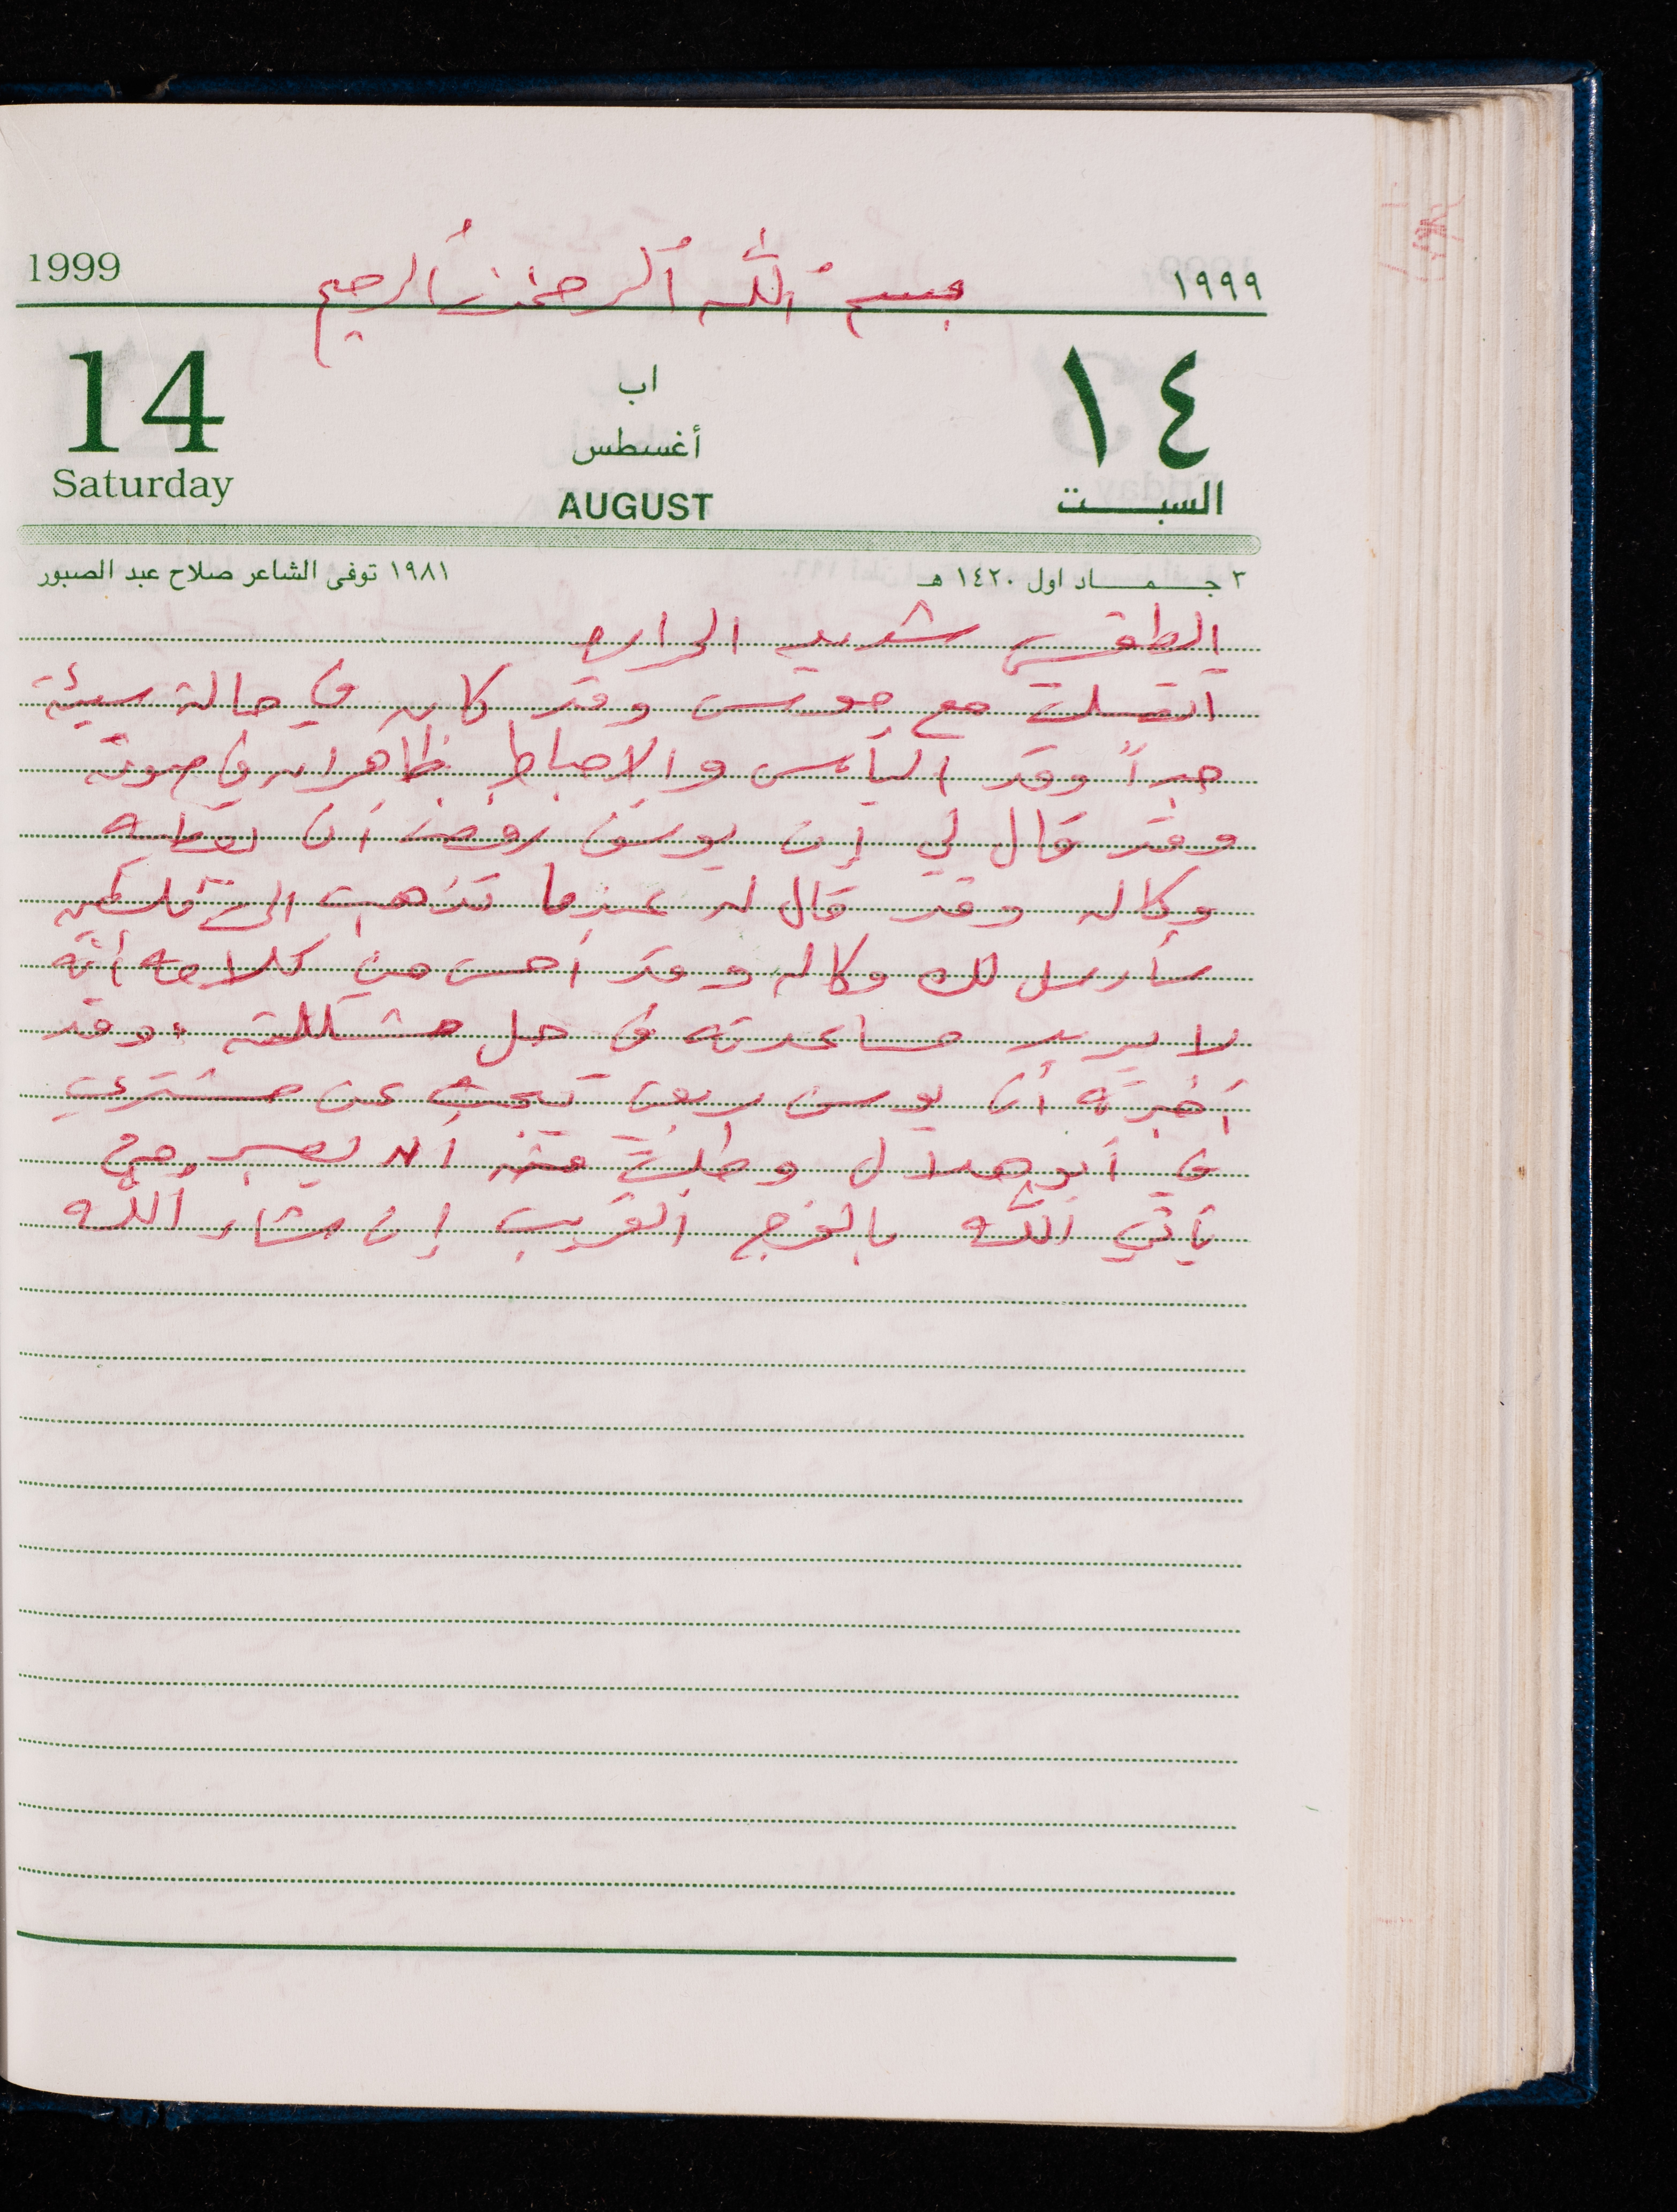 1999 بسم الله الرحمن الرحيم ١٩٩٩
14 اب ١٤
Saturday أغسطس السبت
AUGUST
٣ جماد اول ١٤٢٠ هـ ١٩٨١ توفى الشاعر صلاح عبد الصبور
الطقس شديد الحراره
اتصلت مع وقد كان في حالة سيئة
جداً وقد اليأس والاحباط ظاهراً في صوته
وقد قال لي إن يوسف رفض أن يعطيه
وكاله وقد قال له عندما تذهب الى فلسطين
سأرسل لك وكاله وقد أحس من كلامه أنه
لا يريد مساعدته في حل مشكلته . وقد
أخبرته أن يبحث عن مشتري
في وطلبت منه ان يصبر حتى
يأتي الله بالفرج القريب إن شاء الله